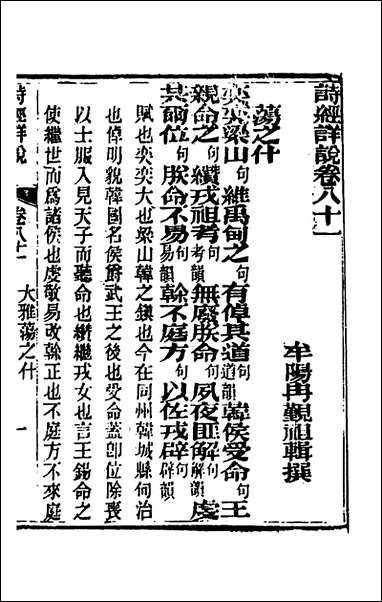 詩經詳說卷八十一
牟陽冉覲祖輯撰
蕩之什
奕奕梁山句維禹甸之句有倬其道句道韻韓侯受命句王
親命之句纘戎祖考句考韻無廢朕命句夙夜匪解句解韻虔
共爾位句朕命不易句易韻榦不庭方句以佐戎辟句辟韻
賦也奕奕大也梁山韓之鎮也今在同州韓城縣甸治
也倬明貌韓國名侯爵武王之後也受命蓋卽位除喪
以士服入見天子而聽命也纘繼戎女也言王錫命之
使繼世而爲諸侯也虔敬易改榦正也不庭方不來庭
詩經詳說 卷八十一 大雅蕩之什 一